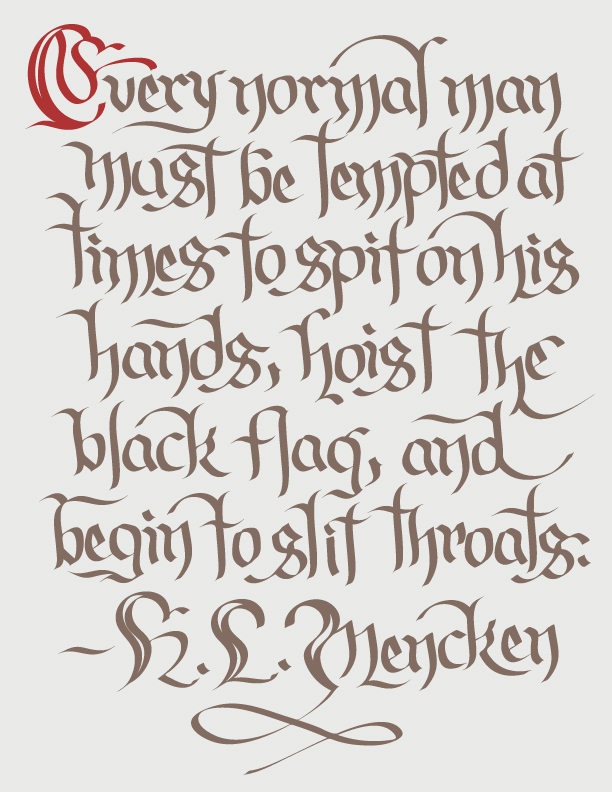 Every normal man
must be tempted at
times to spit on his
hands, hoist the
black flag, and
begin to slit throats.
~H. L. Mencken